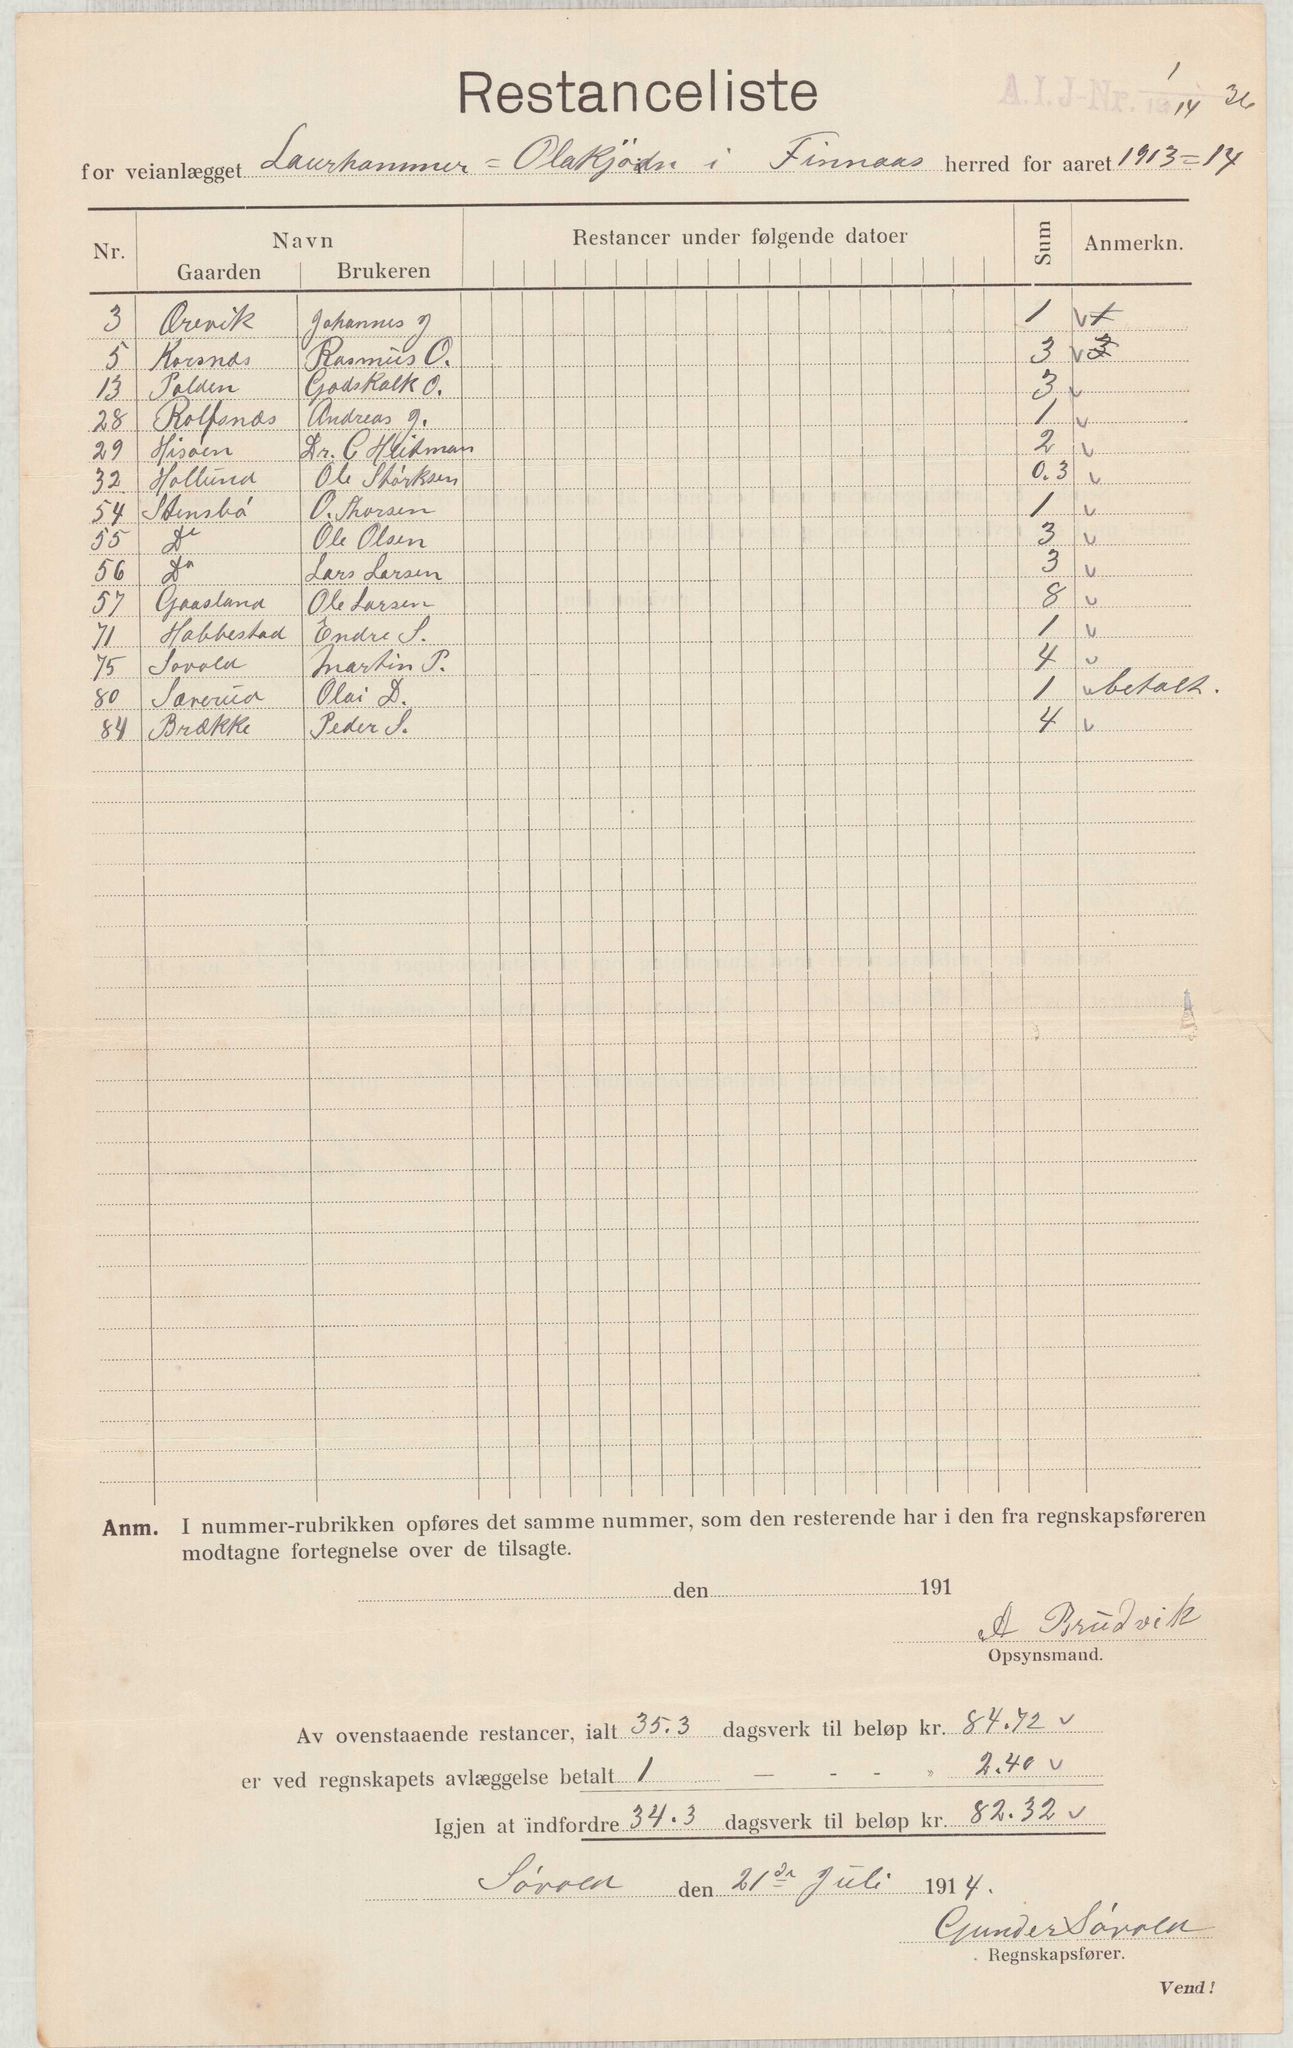 A.I.J-Nr. 1/14 36
Restanceliste
for veianlægget Laurhammer = Olakjödn i Finnaas herred for aaret 1913=14
Nr. Navn Restancer under følgende datoer Sum Anmerkn.
Gaarden Brukeren
3 Örevik Johannes J 1 v
5 Korsnæs Rasmus O. 3 v 3
13 Polden Godskalk O. 3 v
28 Rolfsnæs Andreas J. 1 v
29 Hisöen Dr. C Heitman 2 v
32 Hollund Ole Störksen 0.3 v
54 Stensbö O. Thorsen 1 v
55 Do Ole Olsen 3 v
56 Do Lars Larsen 3 v
57 Gaasland Ole Larsen 8 v
71 Habbestad Endre S. 1 v
75 Sövold Martin P. 4 v
80 Særvold Olai D. 1 v betalt.
84 Brække Peder S. 4 v
Anm. I nummer-rubrikken opføres det samme nummer, som den resterende har i den fra regnskapsføreren
modtagne fortegnelse over de tilsagte.
den 191
A Brüdvik
Opsynsmand.
Av ovenstaaende restancer, ialt 35.3 dagsverk til beløp kr. 84.72 v
er ved regnskapets avlæggelse betalt 1 — - - „ 2.40 v
Igjen at indfordre 34.3 dagsverk til beløp kr. 82.32 v
Sövold den 21de Juli 1914.
Gunder Sövold
Regnskapsfører.
Vend!